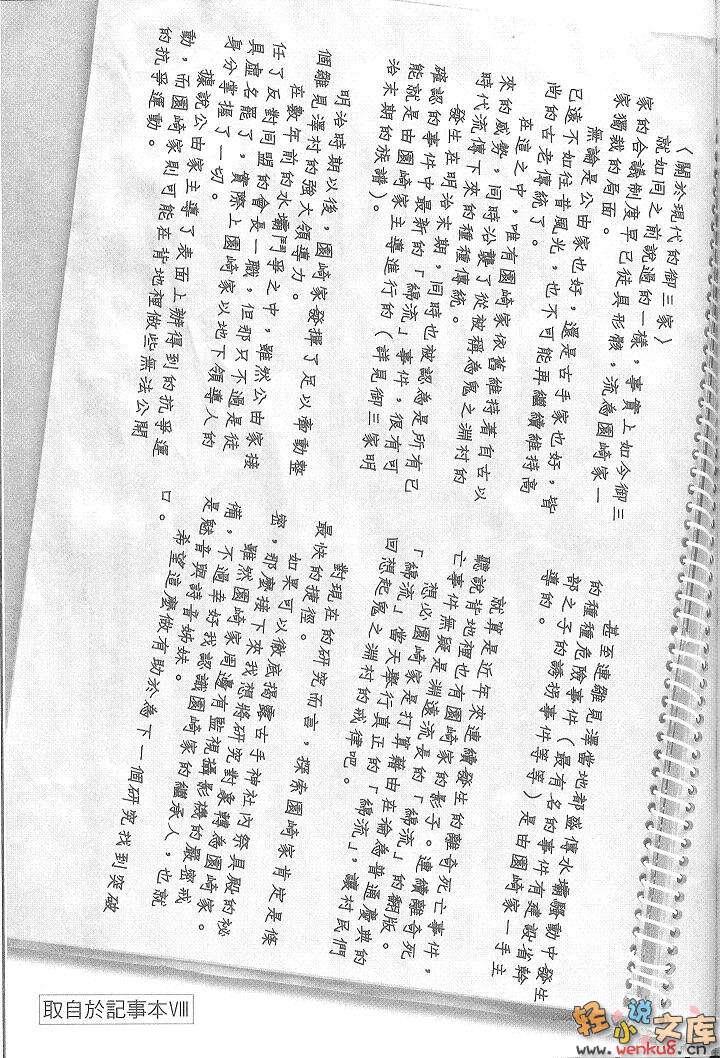 〈關於現代的御三家〉
就如同之前說過的一樣，事實上如今御三
家的合議制度早已徒具形骸，流為園崎家一
家獨裁的局面。
無論是公由家也好，還是古手家也好，皆
已遠不如往昔風光，也不可能再繼續維持高
尚的古老傳統了。
在這之中，唯有園崎家依舊維持著自古以
來的威勢，同時沿襲了從被稱為鬼之淵村的
時代流傳下來的種種傳統。
發生在明治末期，同時也被認為是所有已
確認的事件中最新的「綿流」事件，很有可
能就是由園崎家主導進行的（詳見御三家明
治末期的族譜）。
明治時期以後，園崎家發揮了足以牽動整
個雛見澤村的強大領導力。
在數年前的水壩鬥爭之中，雖然公由家接
任了反對同盟的會長一職，但那只不過是徒
具虛名罷了，實際上園崎家以地下領導人的
身分掌握了一切。
據說公由家主導了表面上辦得到的抗爭運
動，而園崎家則可能在背地裡做些無法公開
的抗爭運動。
甚至連雛見澤當地都盛傳水壩騷動中發生
的種種危險事件（最有名的事件有建設省幹
部之子的誘拐事件等等）是由園崎家一手主
導的。
就算是近年來連續發生的離奇死亡事件，
聽說背地裡也有園崎家的影子。連續離奇死
亡事件無疑是淵遠流長的「綿流」的翻版。
想必園崎家是打算藉由在淪為普通慶典的
「綿流」當天舉行真正的「綿流」，讓村民們
回想起鬼之淵村的戒律吧。
對現在的研究而言，探索園崎家肯定是條
最快的捷徑。
如果可以徹底揭露古手神社內祭具殿的祕
密，那麼接下來我想將研究對象轉為園崎家。
雖然園崎家周邊有監視攝影機的嚴密戒
備，不過幸好我認識園崎家的繼承人，也就
是魅音與詩音姊妹。
希望這麼做有助於為下一個研究找到突破
口。
取自於記事本Ⅷ
轻小说文库
www.wenku8.cn